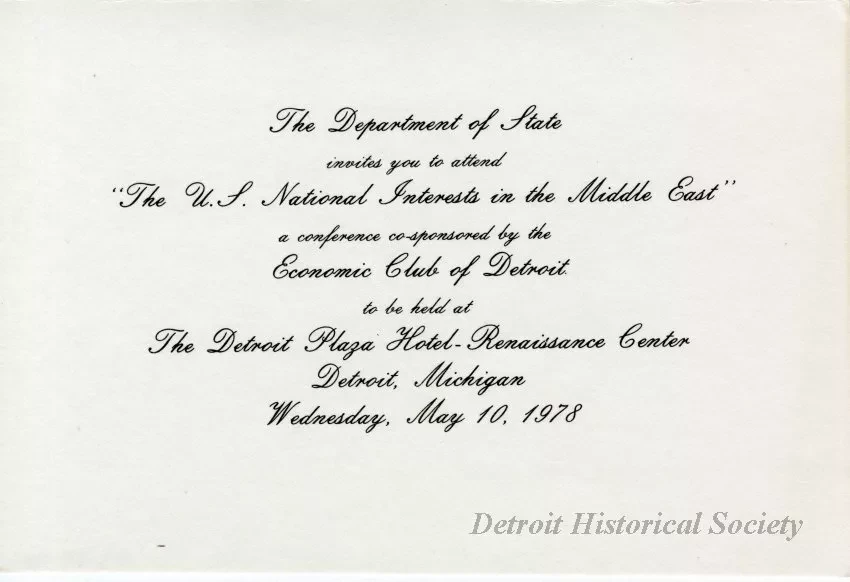 The Department of State
invites you to attend
"The U.S. National Interests in the Middle East"
a conference co-sponsored by the
Economic Club of Detroit
to be held at
The Detroit Plaza Hotel-Renaissance Center
Detroit, Michigan
Wednesday, May 10, 1978
Detroit Historical Society